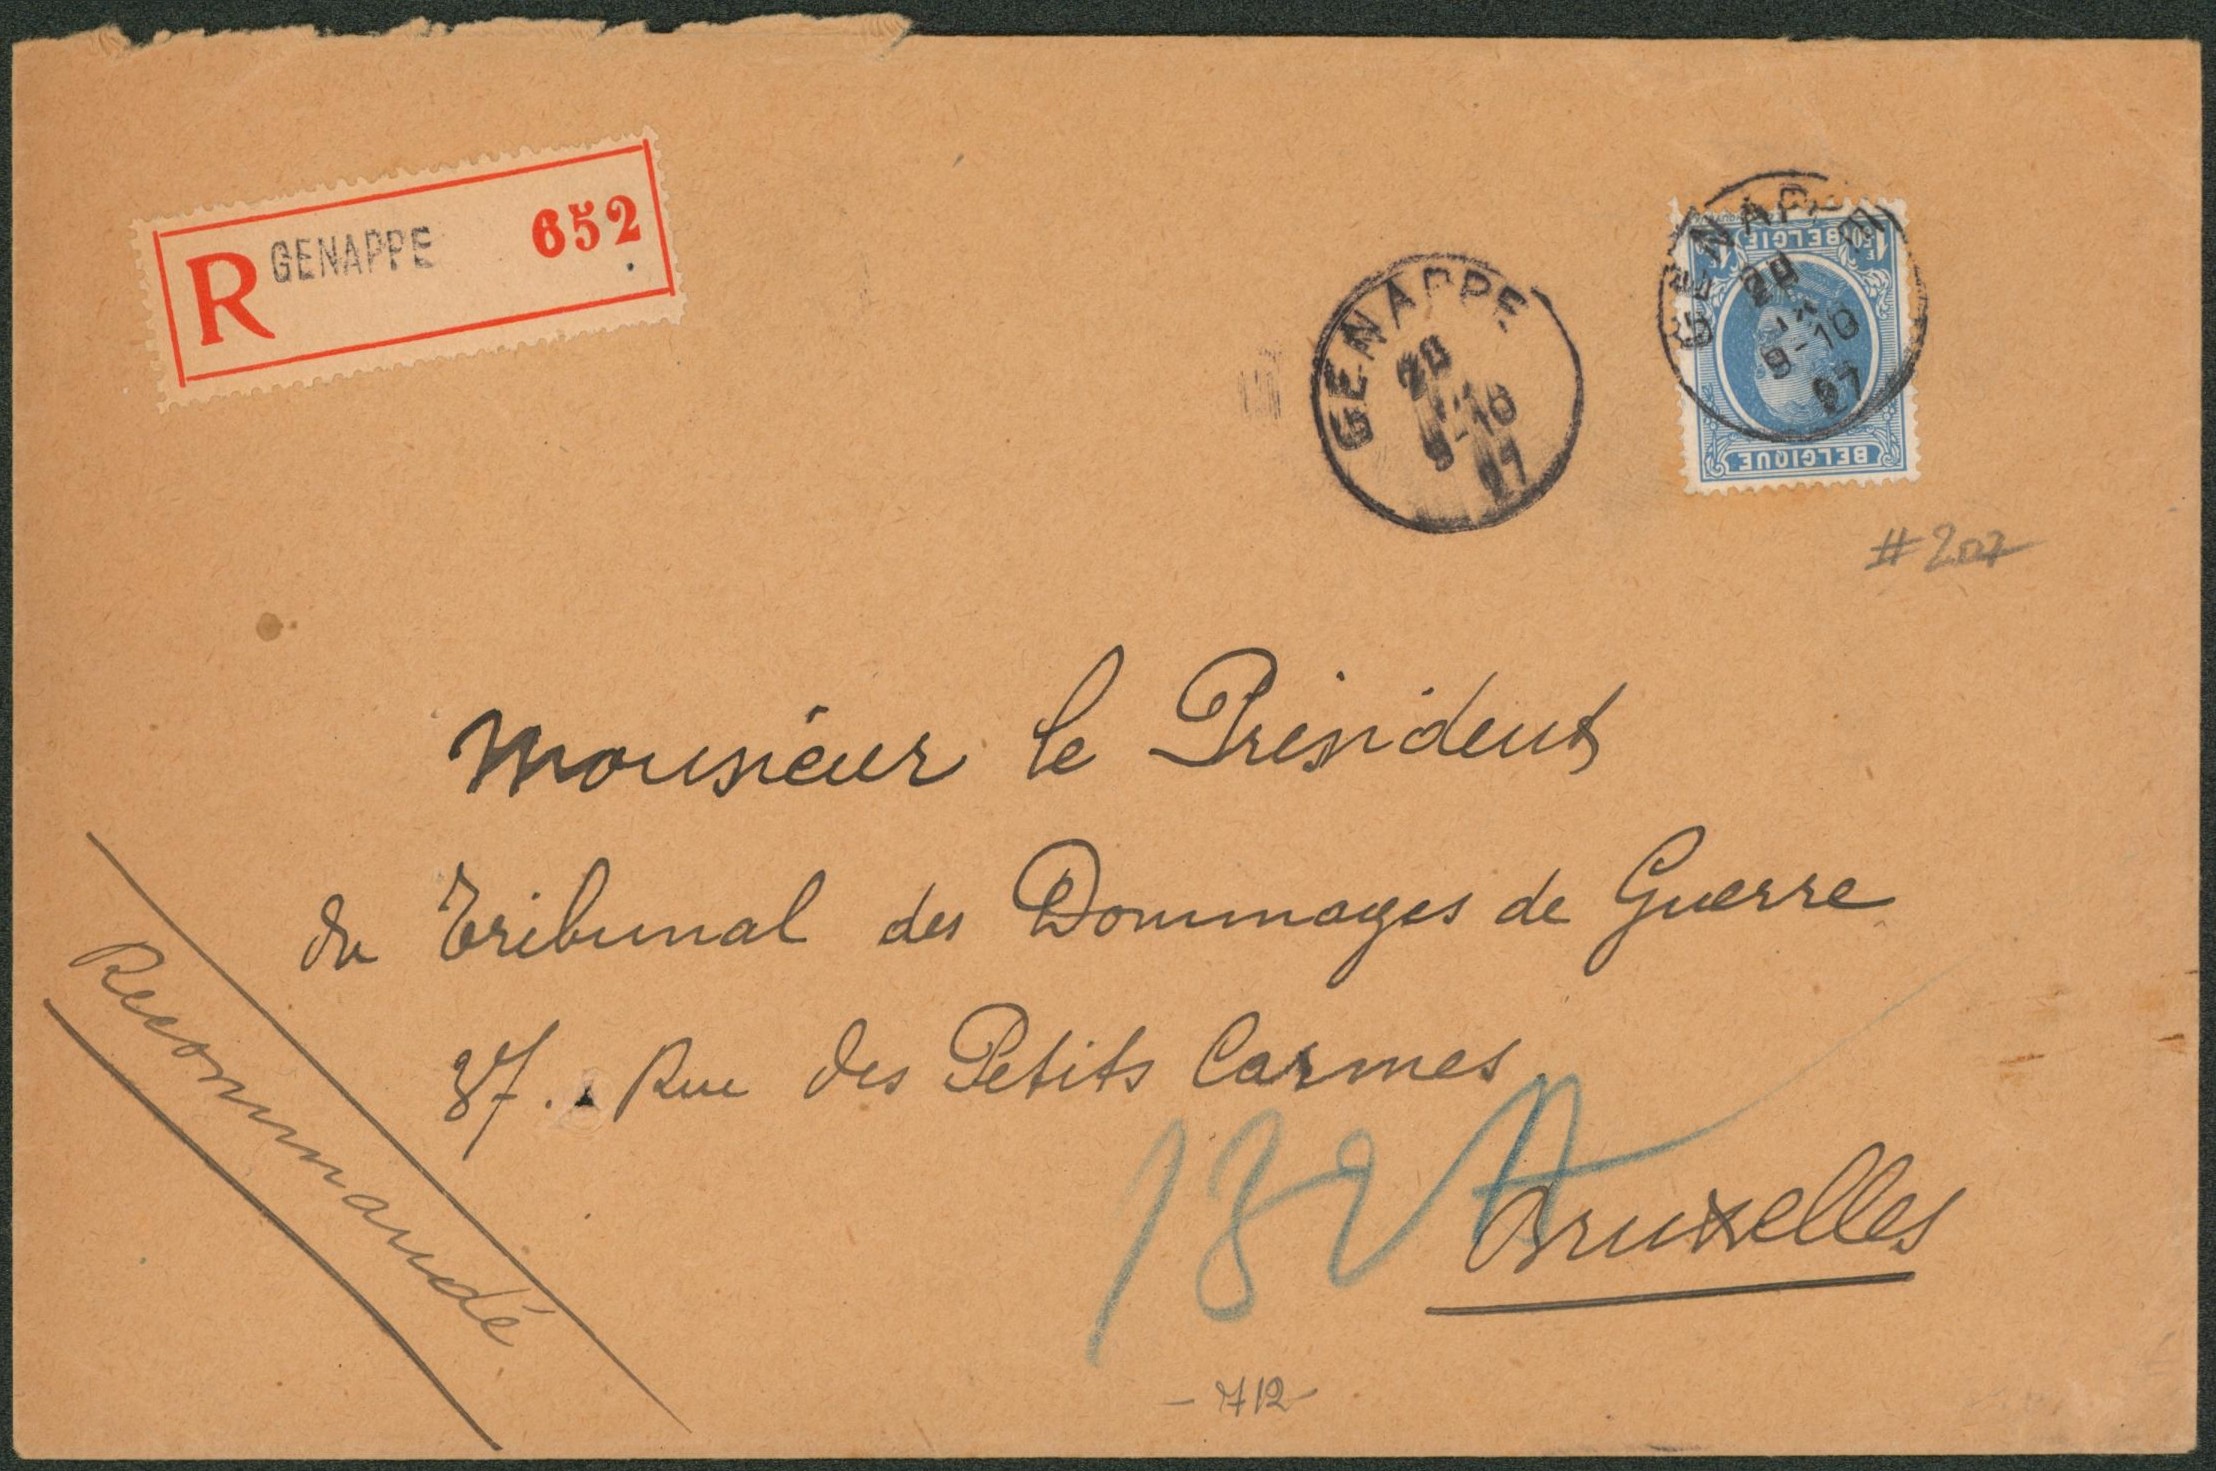 R GENAPPE 652
GENAPPE
28
9-10
27
GENAPPE
28
IX
9-10
27
BELGIË
BELGIQUE
#207
Monsieur le Président
du Tribunal des Dommages de Guerre
37. Rue des Petits Carmes
Bruxelles
Recommandé
- 712 -